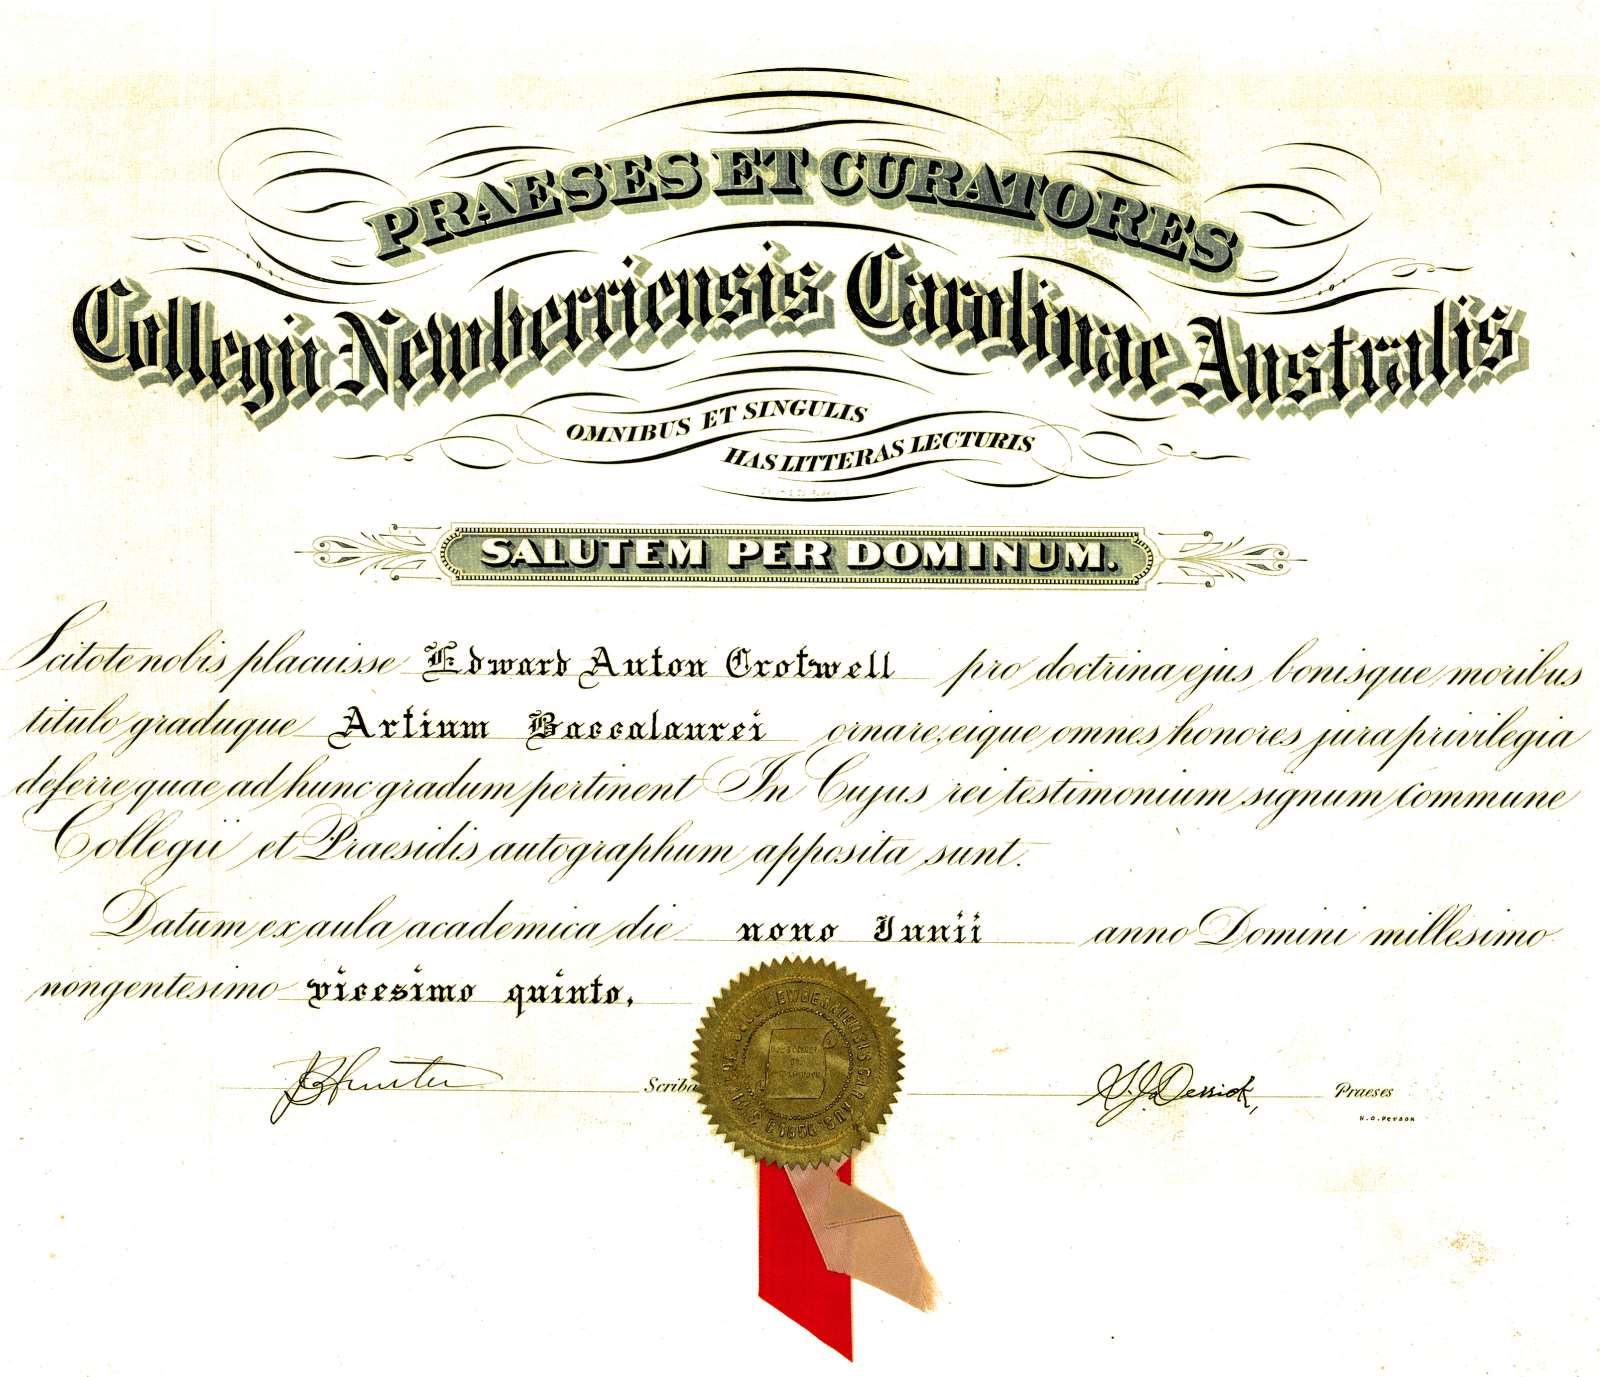 PRAESES ET CURATORES
Collegii Newberriensis Carolinae Australis
OMNIBUS ET SINGULIS
HAS LITTERAS LECTURIS
SALUTEM PER DOMINUM.
Scitote nobis placuisse Edward Anton Crotwell pro doctrina ejus bonisque moribus
titulo graduque Artium Baccalaurei ornare, eique omnes honores jura privilegia
deferre quae ad hunc gradum pertinent In Cujus rei testimonium signum commune
Collegii et Praesidis autographum apposita sunt.
Datum ex aula academica die nono Iunii anno Domini millesimo
nongentesimo vicesimo quinto,
Scriba
S. J. Derrick, Praeses